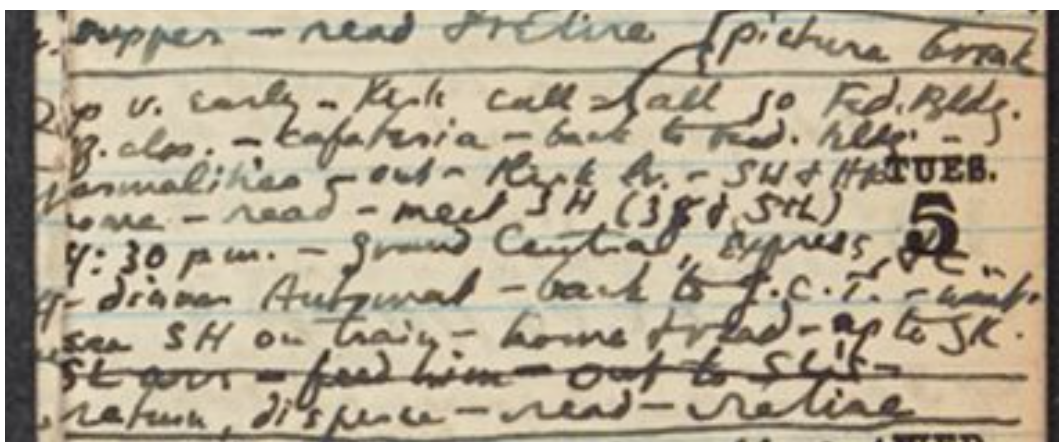 supper – read & retire {picture break
Up v. early – Kirk call – all go Fed. Bldg.
clos. – cafeteria – back to Fed. bldg. –
formalities – out – Kirk br. – SH & HP TUES.
home – read – meet SH (38 & 5th) 5
4:30 p.m. – Grand Central, express,
dinner Automat – back to G.C.T. –
see SH on train – home & read – up to JK.
SL arr – feed him – out to SL's –
return, disperse – read – retire
WED.